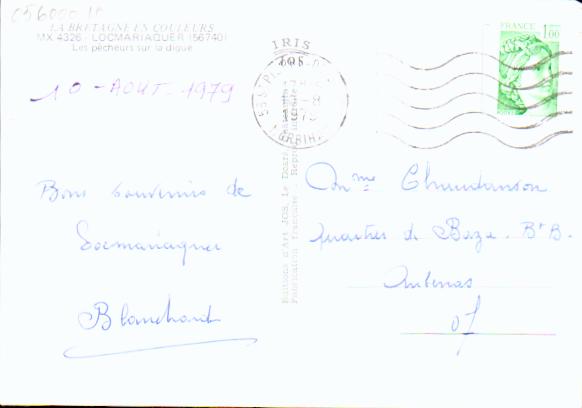 C56000 10
LA BRETAGNE EN COULEURS
MX 4326 - LOCMARIAQUER (56740)
Les pêcheurs sur la digue
10-AOUT-1979
Bons souvenirs de
Locmariaquer
Blanchard
IRIS
JOS
Editions d'Art JOS, Le Doaré, Chateaulin
Fabrication française - Reproduction interdite
FRANCE
1,00
MORBIHAN
Mme
quartier de Baza. BtB.
Aubenas
07